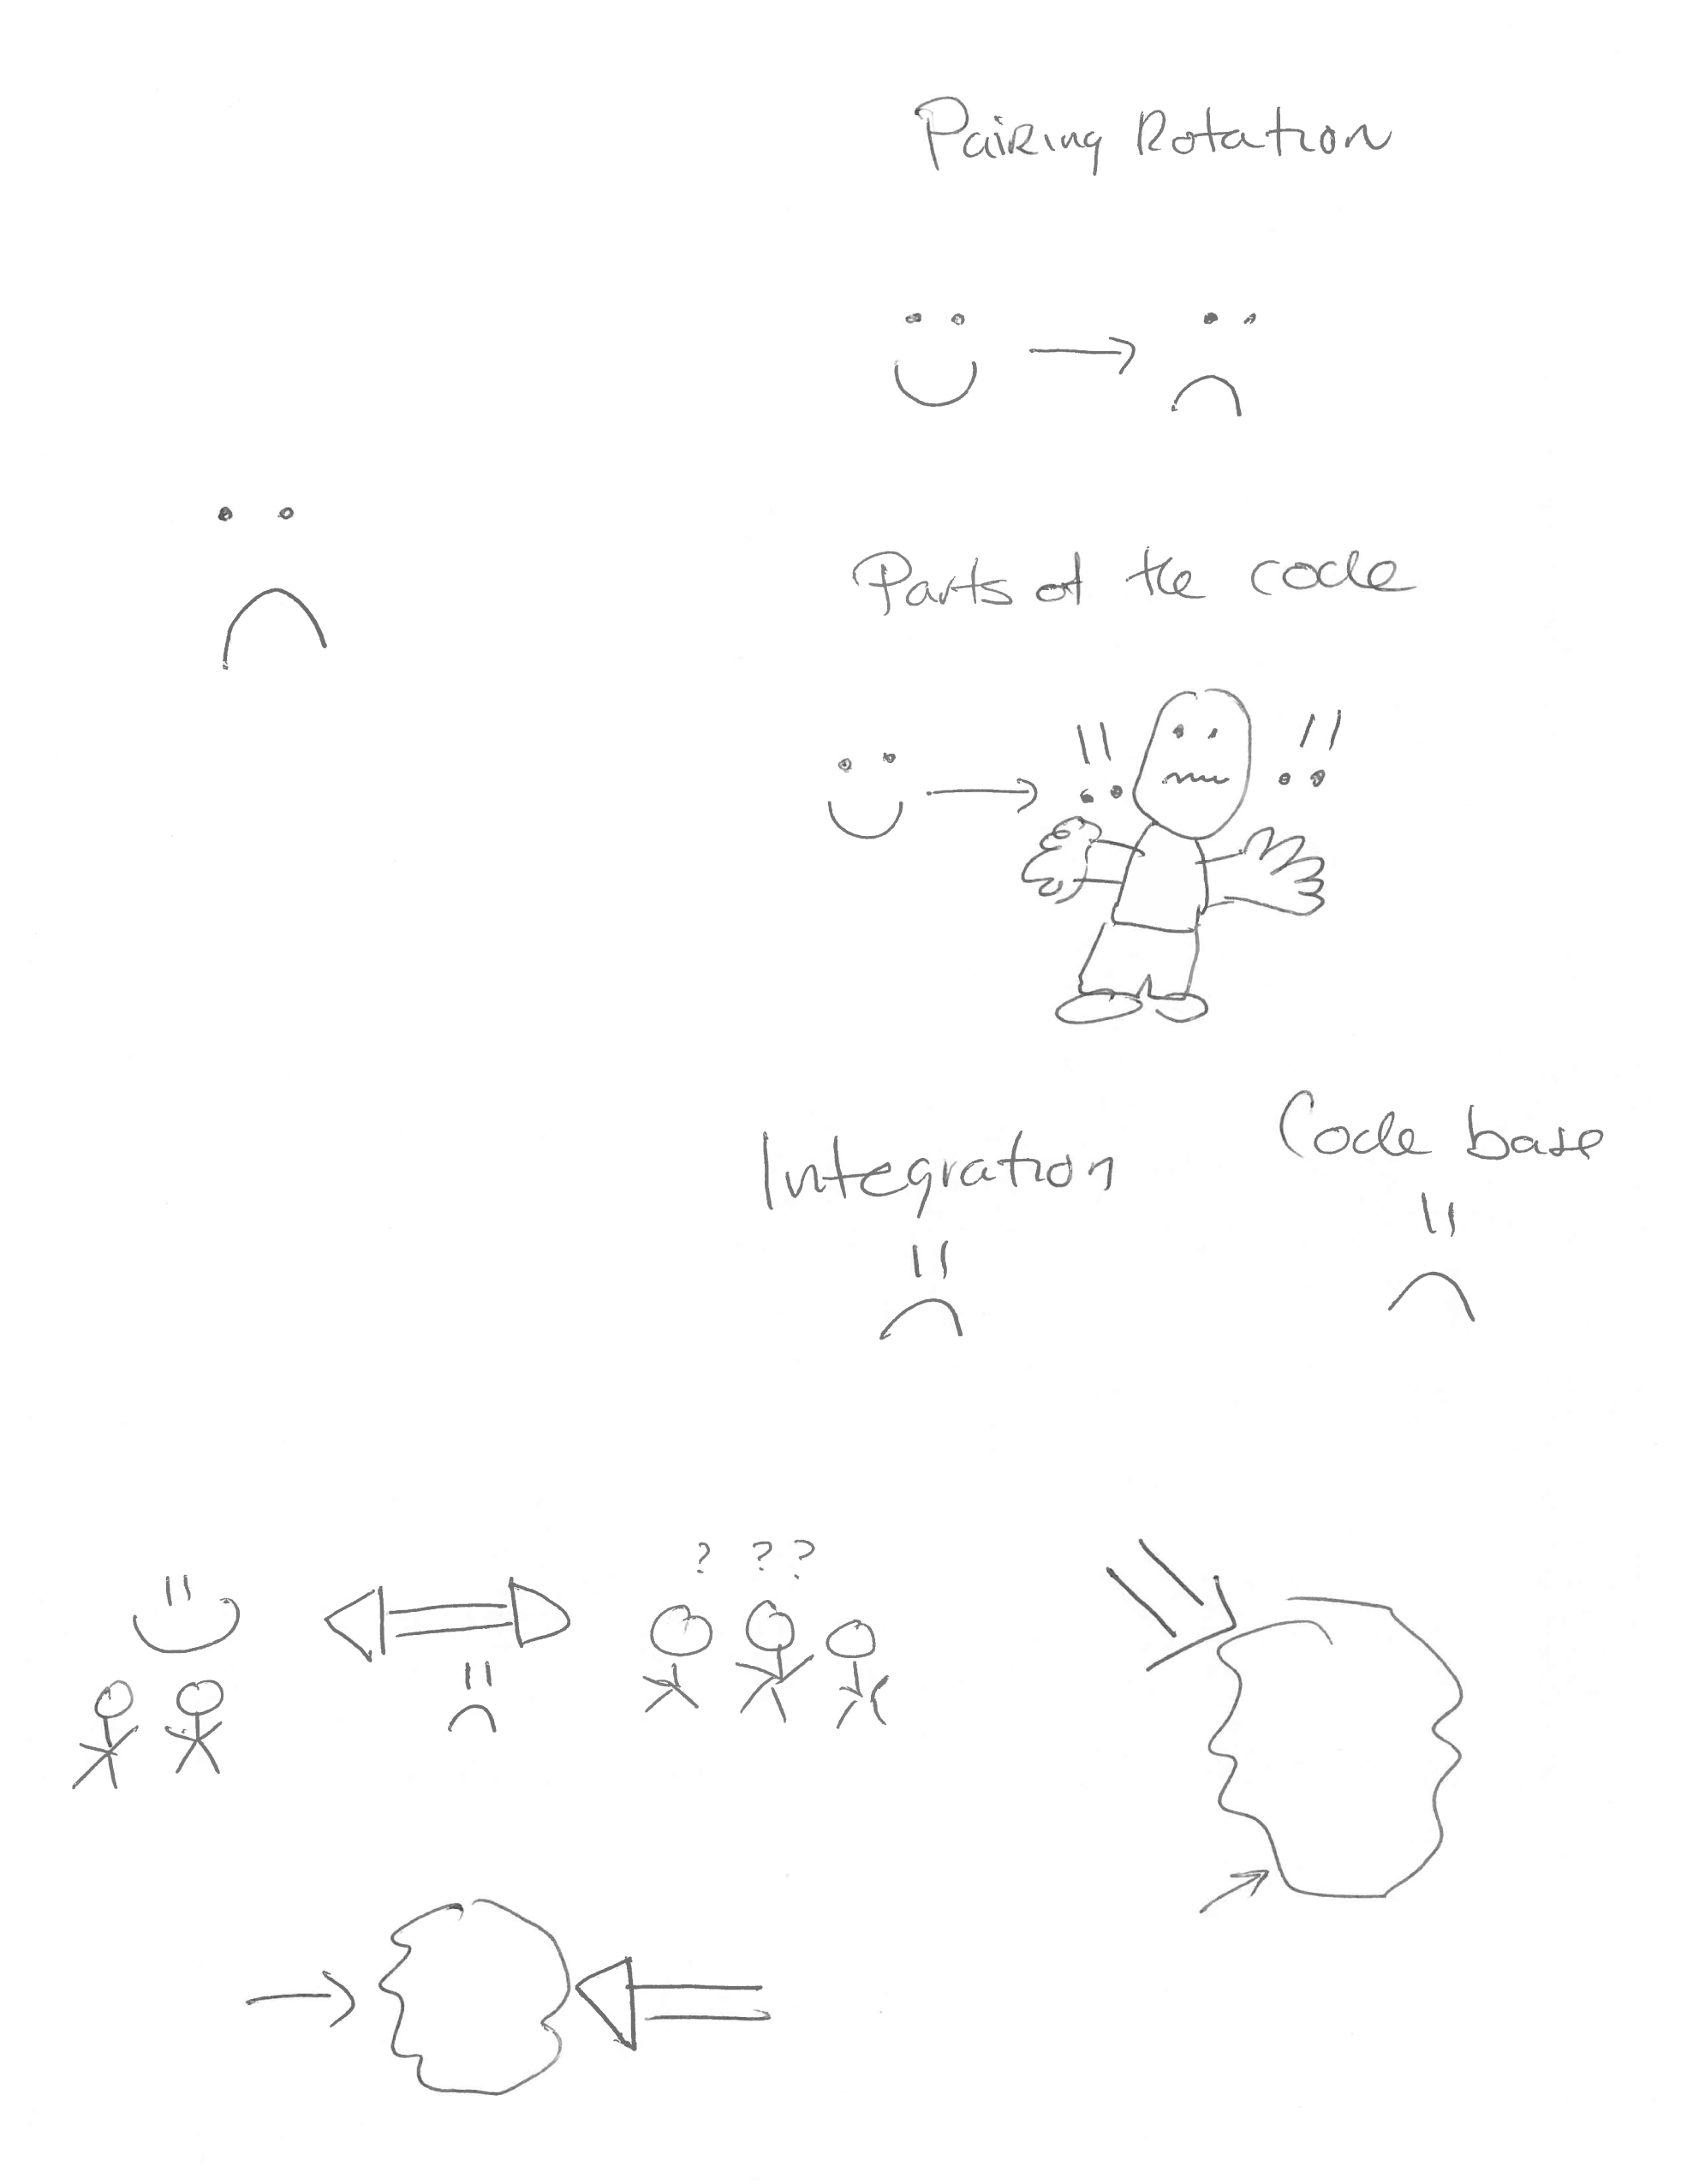 Pairing Rotation
Parts of the code
Integration
Code base
? ? ?